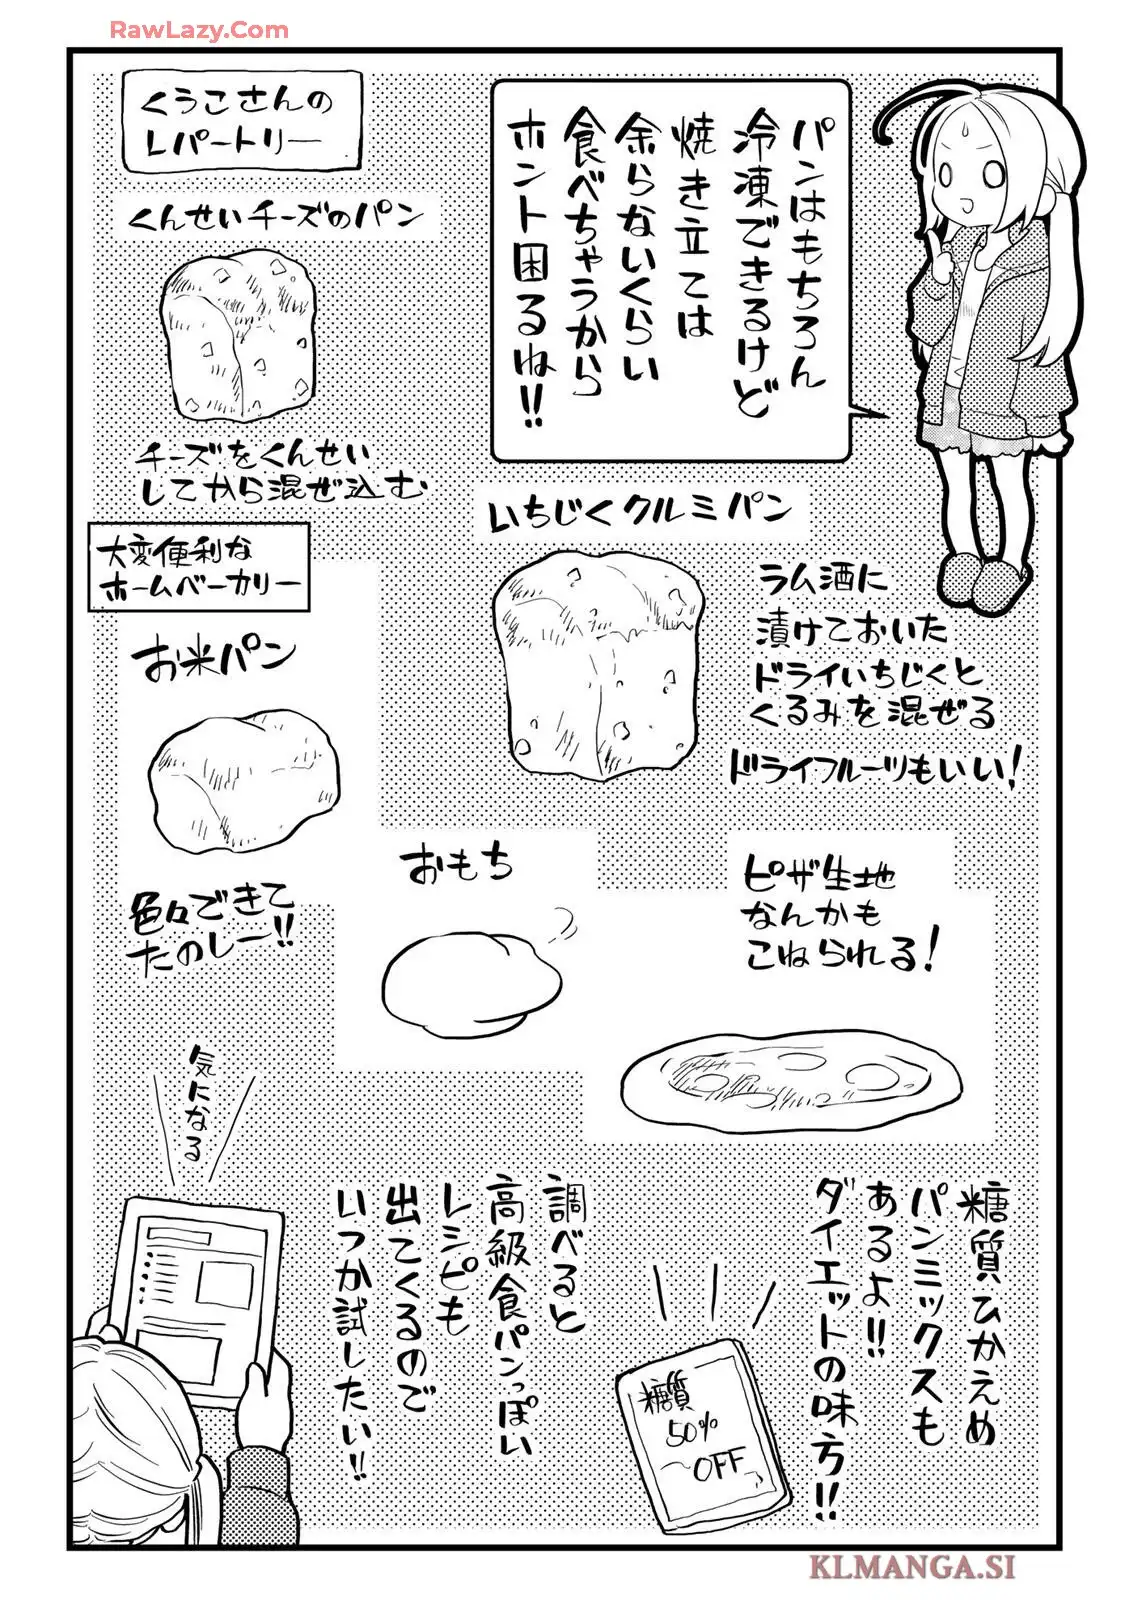 RawLazy.Com
パンはもちろん
冷凍できるけど
焼き立ては
余らないくらい
食べちゃうから
ホント困るね!!
くうこさんの
レパートリー
くんせいチーズのパン
チーズをくんせい
してから混ぜ込む
いちじくクルミパン
ラム酒に
漬けておいた
ドライいちじくと
くるみを混ぜる
ドライフルーツもいい!
大変便利な
ホームベーカリー
お米パン
色々できて
たのしー!!
おもち
ピザ生地
なんかも
こねられる!
糖質ひかえめ
パンミックスも
あるよ!!
ダイエットの味方!!
糖質
50%
OFF
調べると
高級食パンっぽい
レシピも
出てくるので
いつか試したい!!
気になる
KLMANGA.SI